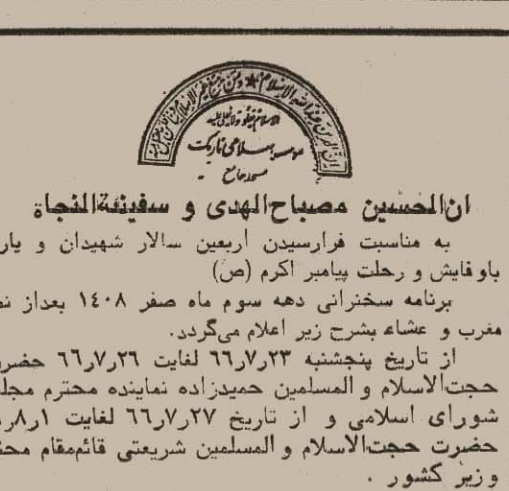 الاسلام یعلو و لا یعلی علیه
موسسه اسلامی نازیک
مسجد جامع
ان‌الحسین مصباح‌الهدی و سفینة‌النجاة
به مناسبت فرارسیدن اربعین سالار شهیدان و یار
باوفایش و رحلت پیامبر اکرم (ص)
برنامه سخنرانی دهه سوم ماه صفر ۱۴۰۸ بعداز
مغرب و عشاء بشرح زیر اعلام می‌گردد.
از تاریخ پنجشنبه ۶۶٫۷٫۲۳ لغایت ۶۶٫۷٫۲۶
حجت‌الاسلام و المسلمین حمیدزاده نماینده محترم
شورای اسلامی و از تاریخ ۶۶٫۷٫۲۷ لغایت
حضرت حجت‌الاسلام و المسلمین شریعتی قائم‌مقام
وزیر کشور .